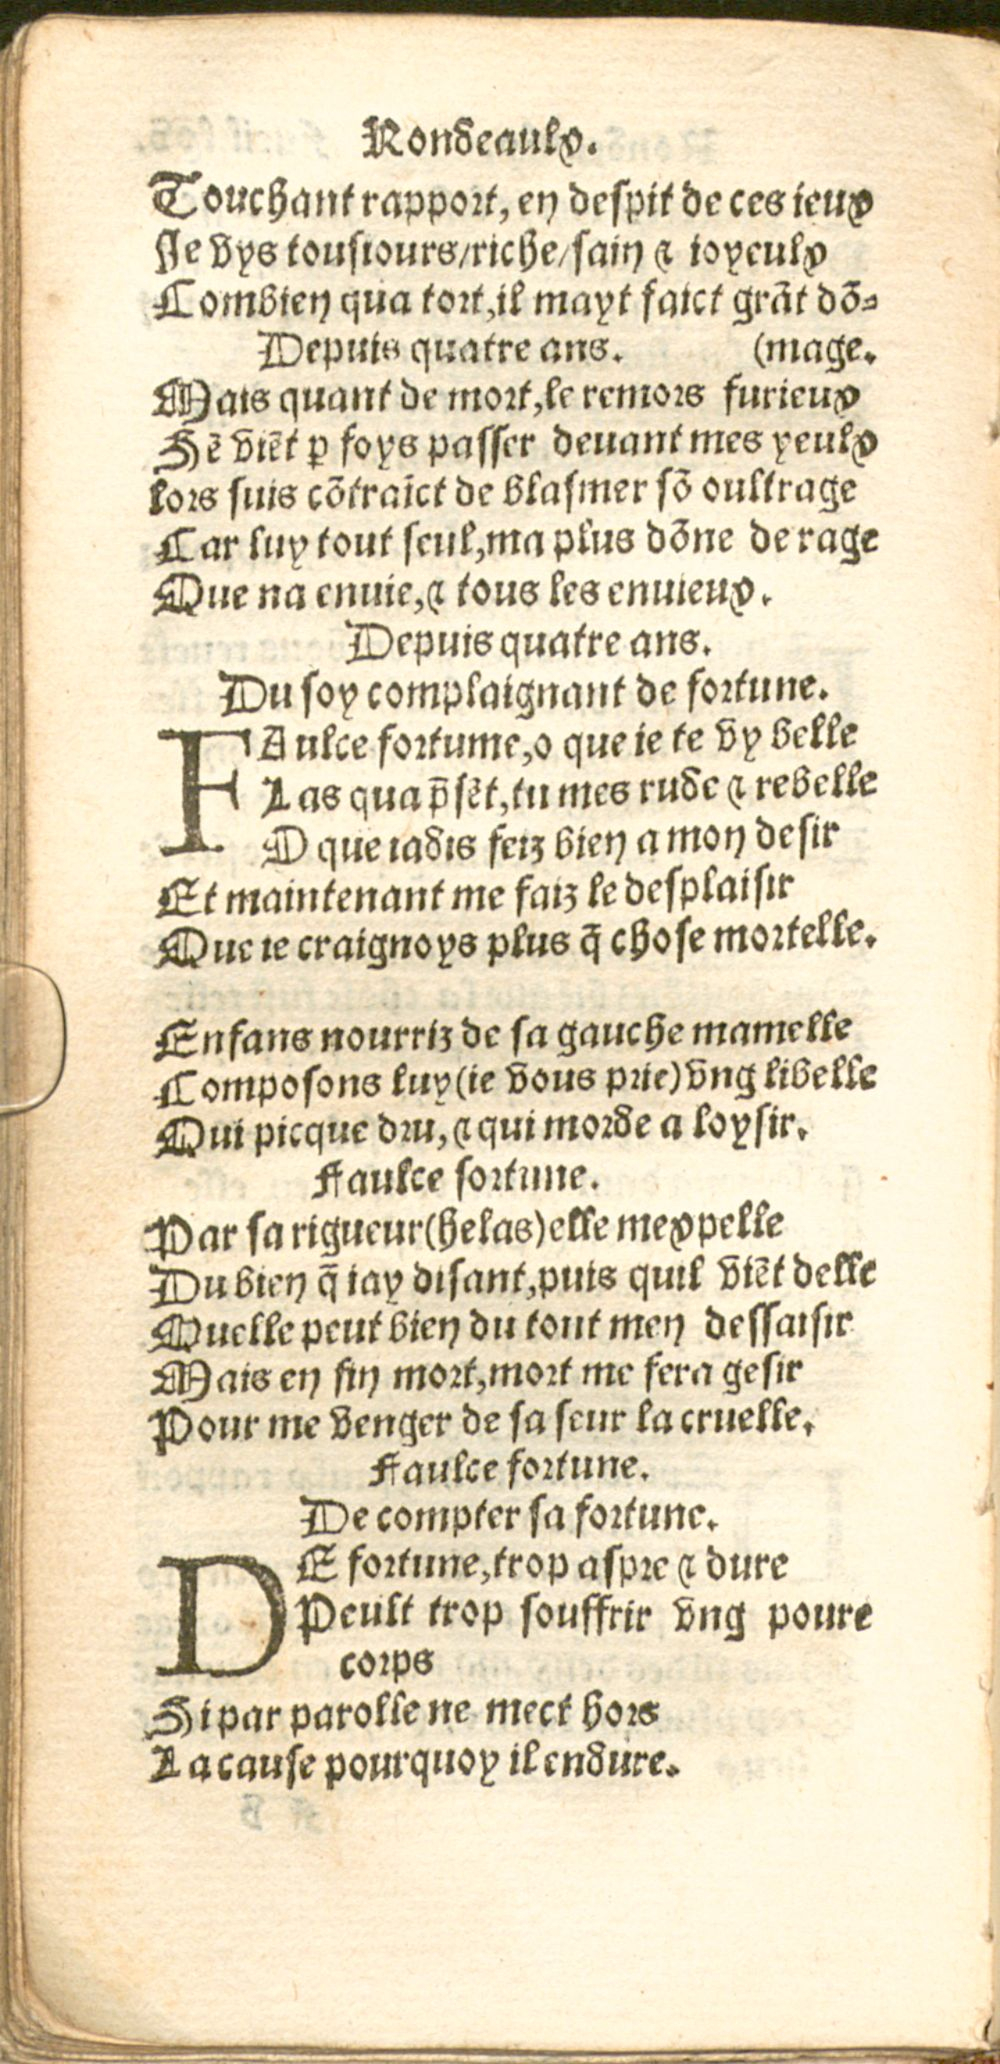 Rondeaulx.
Touchant rapport, en despit de ces ieux
Je vys tousiours/riche/sain & ioyeulx
Combien qua tort,il mayt faict grãt dõ=
Depuis quatre ans. (mage.
Mais quant de mort,le remors furieux
Sẽ viẽt ꝑ foys passer devant mes yeulx
lors suis cõtraĩct de blasmer sõ oultrage
Car luy tout seul,ma plus dõne de rage
Que na enuie,& tous les enuieux.
Depuis quatre ans.
Du soy complaignant de fortune.
FAulce fortume,o que ie te vy belle
Las qua p̃sẽt,tu mes rude & rebelle
O que iadis feiz bien a mon desir
Et maintenant me faiz le desplaisir
Que ie craignoys plus q̃ chose mortelle.
Enfans nourriz de sa gauche mamelle
Composons luy(ie vous prie)vng libelle
Qui picque dru,& qui morde a loysir.
Faulce fortune.
Par sa rigueur(helas)elle mexpelle
Du bien q̃ iay disant,puis quil viẽt delle
Quelle peut bien du tout men dessaisir
Mais en fin mort,mort me fera gesir
Pour me venger de sa seur la cruelle.
Faulce fortune.
De compter sa fortune.
DE fortune,trop aspre & dure
Peult trop souffrir vng poure
corps
Si par parolle ne mect hors
La cause pourquoy il endure.